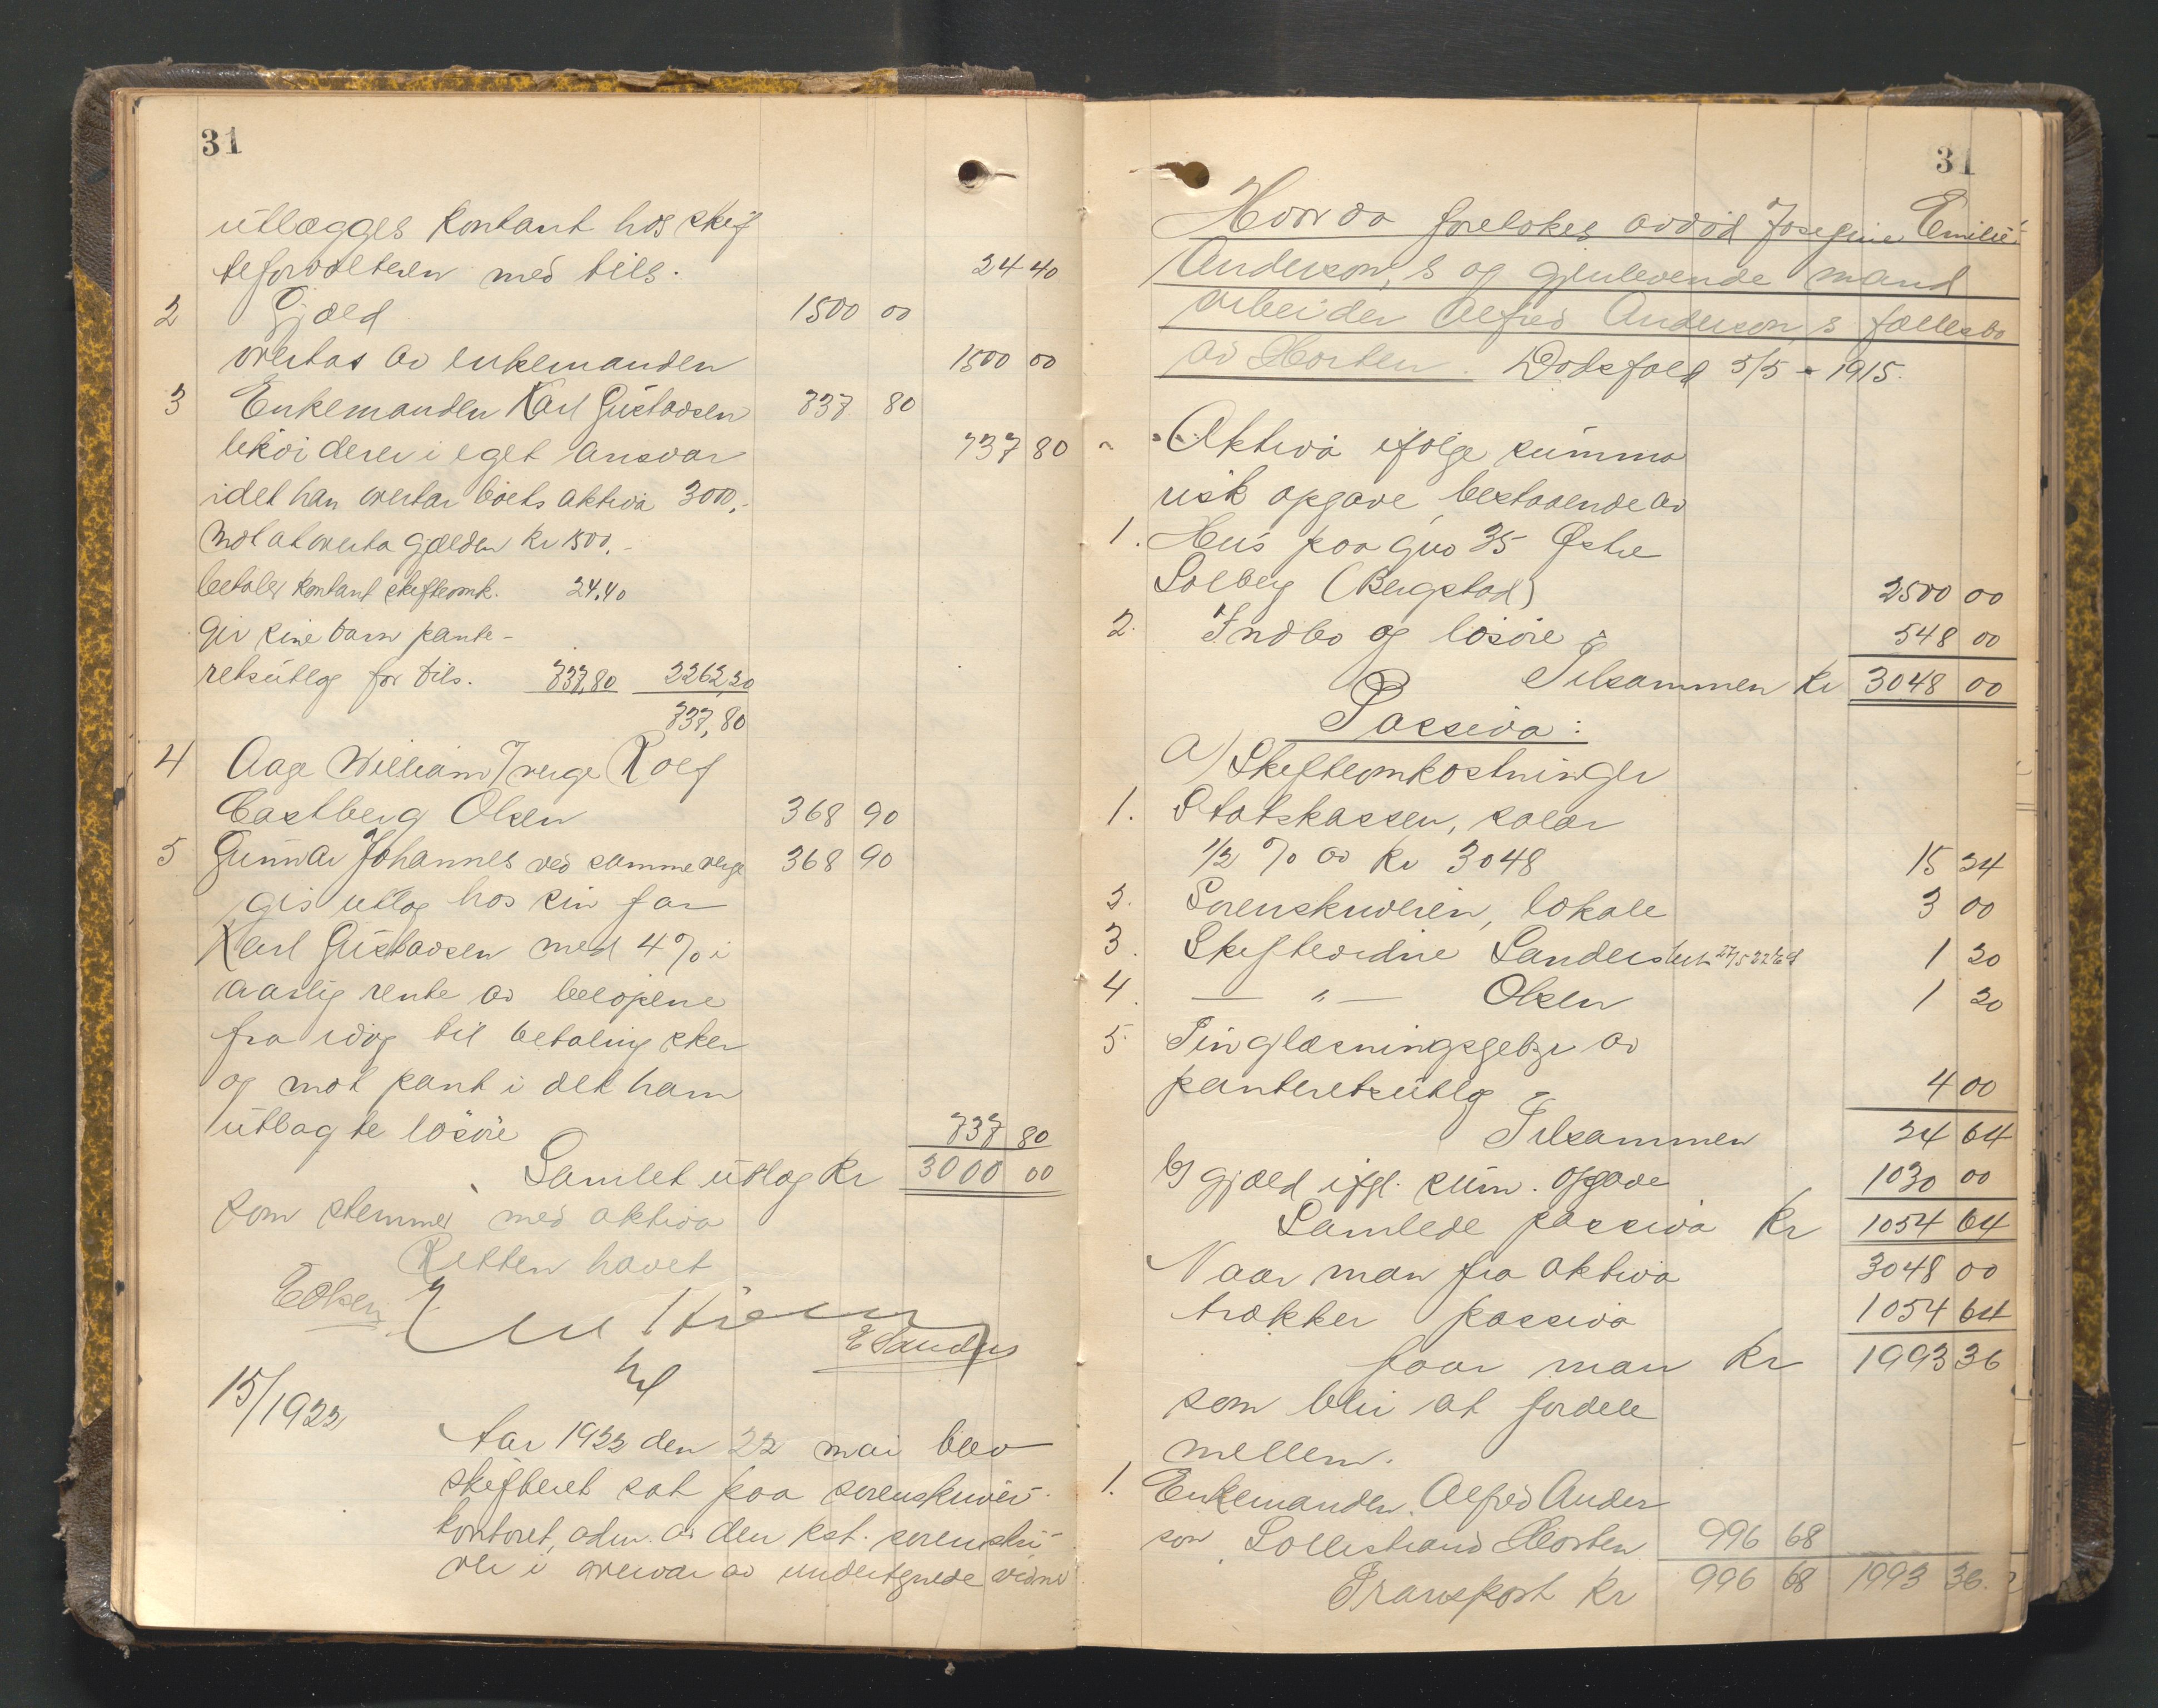 31
utlægges kontant hos skif
teforvalteren med tils. 24 40
2 Gjæld 1500 00
overtas av enkemanden 1500 00
3 Enkemanden Karl Gustavsen 737 80
likviderer i eget ansvar 737 80
idet han overtar boets aktiva 3000,-
mot at overta gjælden kr 1500,-
betaler kontant skifteomk. 24,40
gir sine barn pante-
retsutlæg for tils. 737,80 2262,20
737,80
4 Aage William / verge Rolf
Castberg Olsen 368 90
5 Gunnar Johannes ved samme verge 368 90
gis utlæg hos sin far
Karl Gustavsen med 4% i
aarlig rente av beløpene
fra idag til betaling sker
og mot pant i det ham
utlagte løsøre 737 80
Samlet utlæg kr 3000 00
som stemmer med aktiva
Retten hævet
E Olsen
E Sanders
15/1922
Aar 1922 den 22 mai blev
skifteret sat paa sorenskriver-
kontoret, adm. av den kst. sorenskri-
ver i overvær av undertegnede vidner
31
Hvor da foretokes avdød Josefine Emilie
Anderson,s og gjenlevende mand
arbeider Alfred Anderson,s fællesbo
av Horten. Dødsfald 3/5 - 1915.
Aktiva ifølge summa
risk opgave bestaaende av
1. Hus paa gno 35 Østre
Solberg (Bergstad) 2500 00
2. Indbo og løsøre 548 00
Tilsammen kr 3048 00
Passiva:
a) Skifteomkostninger
1. Statskassen, salær
1/2 % av kr 3048 15 24
2. Sorenskriveren, lokale 3 00
3. Skiftevidne Sanders 1 20
4. — " — Olsen 1 20
5. Tinglæsningsgebyr av
panteretsutlæg 4 00
Tilsammen 24 64
b) gjæld ifgl. sum. opgave 1030 00
Samlede passiva kr 1054 64
Naar man fra aktiva 3048 00
trækker passiva 1054 64
faar man kr 1993 36
som blir at fordele
mellem.
1. Enkemanden Alfred Ander
son, Sollistrand Horten 996 68
Transport kr 996 68 1993 36.